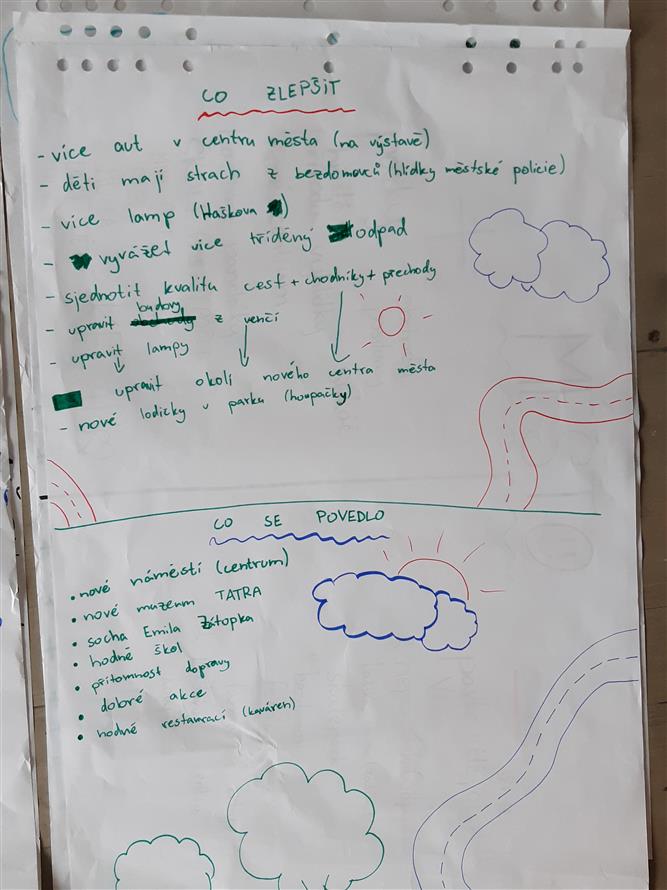 CO ZLEPŠIT
- více aut v centru města (na výstavě)
- děti mají strach z bezdomovců (hlídky městské policie)
- více lamp (Haškova)
- vyvážet více tříděný odpad
- sjednotit kvalitu cest + chodníky + přechody
- upravit budovy z venčí
- upravit lampy
upravit okolí nového centra města
- nové lodičky v parku (houpačky)
CO SE POVEDLO
• nové náměstí (centrum)
• nové muzeum TATRA
• socha Emila Zátopka
• hodně škol
• přítomnost dopravy
• dobré akce
• hodně restaurací (kaváren)